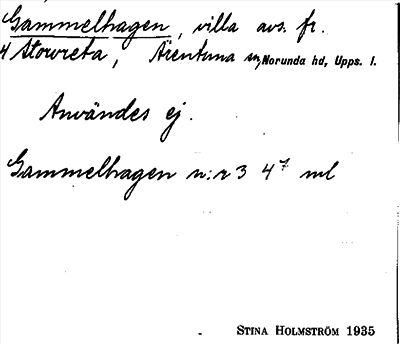 Gammelhagen, villa avs. fr.
4 Storvreta, Ärentuna sn, Norunda hd, Upps. l.
Användes ej.
Gammelhagen n:r 3 4⁷ ml
STINA HOLMSTRÖM 1935